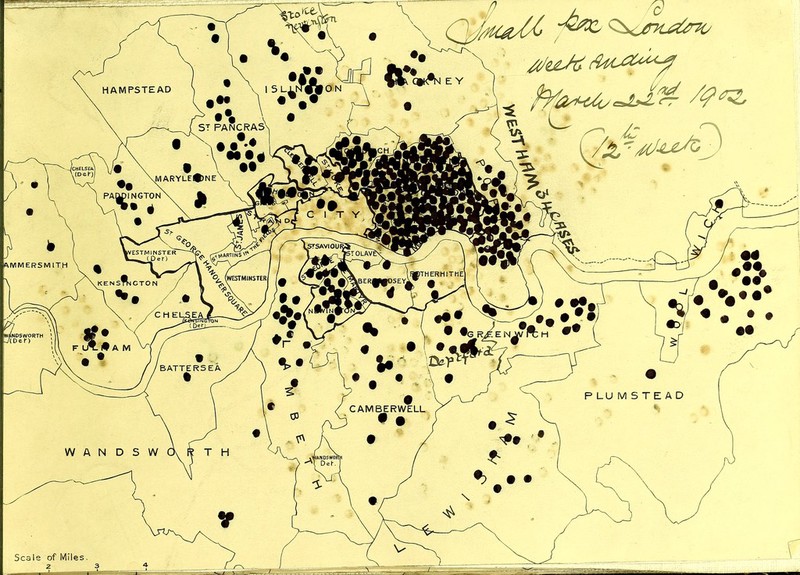 Small pox London
week ending
March 22nd 1902
(12th week)
Stoke
Newington
HAMPSTEAD
ISLINGTON
HACKNEY
ST PANCRAS
WEST HAM 34 CASES
CHELSEA
(Det)
MARYLEBONE
PADDINGTON
CITY
STRAND
ST JAMES
ST MARTINS IN THE FIELDS
ST GEORGE HANOVER SQUARE
WESTMINSTER
(Det)
WESTMINSTER
ST SAVIOUR
ST OLAVE
BERMONDSEY
ROTHERHITHE
AMMERSMITH
KENSINGTON
NEWINGTON
CHELSEA
KENSINGTON
(Det)
WANDSWORTH
(Det)
FULHAM
BATTERSEA
GREENWICH
Deptford
WOOLWICH
PLUMSTEAD
LAMBETH
CAMBERWELL
WANDSWORTH
WANDSWORTH
Det.
LEWISHAM
Scale of Miles.
2 3 4